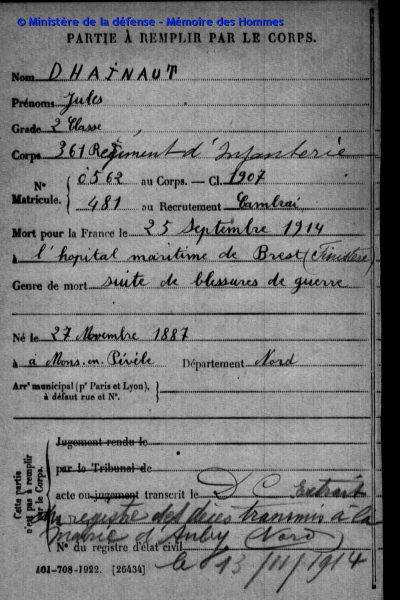 © Ministère de la défense - Mémoire des Hommes
PARTIE À REMPLIR PAR LE CORPS.
Nom DHAINAUT
Prénoms Jules
Grade 2 Classe
Corps 361 Régiment d'Infanterie
N° Matricule. 0562 au Corps. — Cl. 1907
481 au Recrutement Cambrai
Mort pour la France le 25 Septembre 1914
à l'hopital maritime de Brest (Finistère)
Genre de mort suite de blessures de guerre
Né le 27 Novembre 1887
à à Mons-en-Pévèle Département Nord
Arrt municipal (pr Paris et Lyon), à défaut rue et N°.
Cette partie n'est pas à remplir par le Corps.
Jugement rendu le
par le Tribunal de
acte ou jugement transcrit le D C Extrait
du registre des décès transmis à la
mairie d'Auby (Nord)
N° du registre d'état civil
le 13/11/1914
101-708-1922. [26434]